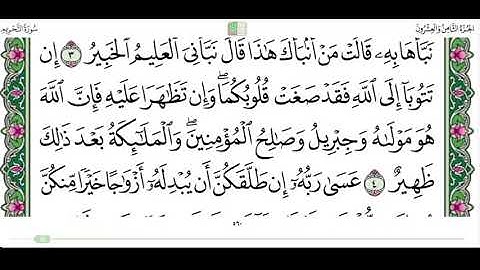 سُورَةُ التَّحْرِيمِ
الجُزْءُ الثَّامِنُ وَالعِشْرُونَ
نَبَّأَهَا بِهِۦ قَالَتْ مَنْ أَنۢبَأَكَ هَٰذَا قَالَ نَبَّأَنِيَ ٱلْعَلِيمُ ٱلْخَبِيرُ ٣ إِن
تَتُوبَآ إِلَى ٱللَّهِ فَقَدْ صَغَتْ قُلُوبُكُمَا ۖ وَإِن تَظَٰهَرَا عَلَيْهِ فَإِنَّ ٱللَّهَ
هُوَ مَوْلَىٰهُ وَجِبْرِيلُ وَصَٰلِحُ ٱلْمُؤْمِنِينَ ۖ وَٱلْمَلَٰٓئِكَةُ بَعْدَ ذَٰلِكَ
ظَهِيرٌ ٤ عَسَىٰ رَبُّهُۥٓ إِن طَلَّقَكُنَّ أَن يُبْدِلَهُۥٓ أَزْوَٰجًا خَيْرًا مِّنكُنَّ
٥٦٠